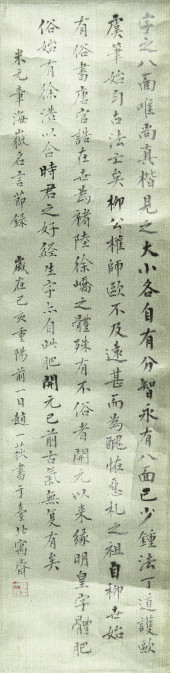 字之八面唯尚真楷見之大小各自有分智永有八面已少鍾法丁道護歐
虞筆始勻古法亡矣柳公權師歐不及遠甚而為醜怪惡札之祖自柳世始
有俗書唐官誥在世為褚陸徐嶠之體殊有不俗者開元以來緣明皇字體肥
俗始有徐浩以合時君之好經生字亦自此肥開元已前古氣無復有矣
米元章海嶽名言節錄 歲在己亥重陽前一日趙一荻書于臺北寓齋